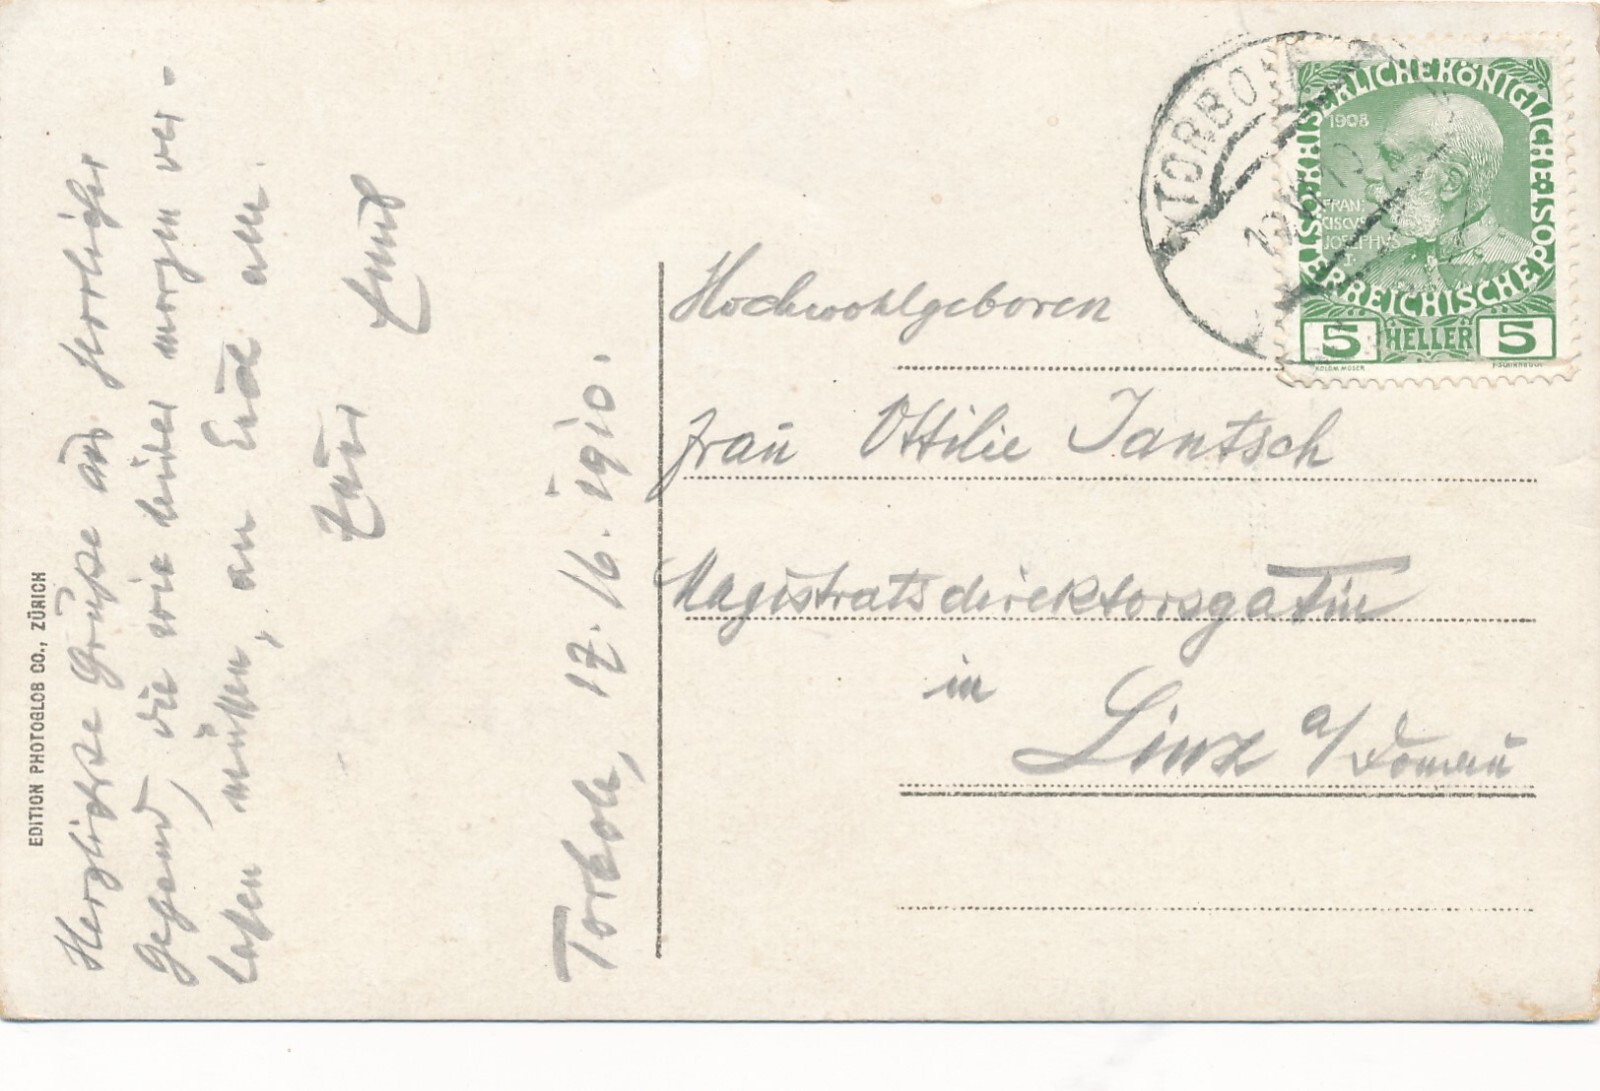 Herzlichste Grüße aus herrlicher
Gegend, die wir leider morgen ver-
lassen müssen, an Euch alle.
Euer
Ernst
Torbole, 17. 16. 1910.
EDITION PHOTOGLOB CO., ZÜRICH
TORBOLE
KAISERLICHE KÖNIGLICHE ÖSTERREICHISCHE POST
1908
FRAN
CISCVS
JOSEPHVS
I.
5 HELLER 5
KOLOM. MOSER
Hochwohlgeboren
Frau Ottilie Jantsch
Magistratsdirektorsgattin
in
Linz a/Donau